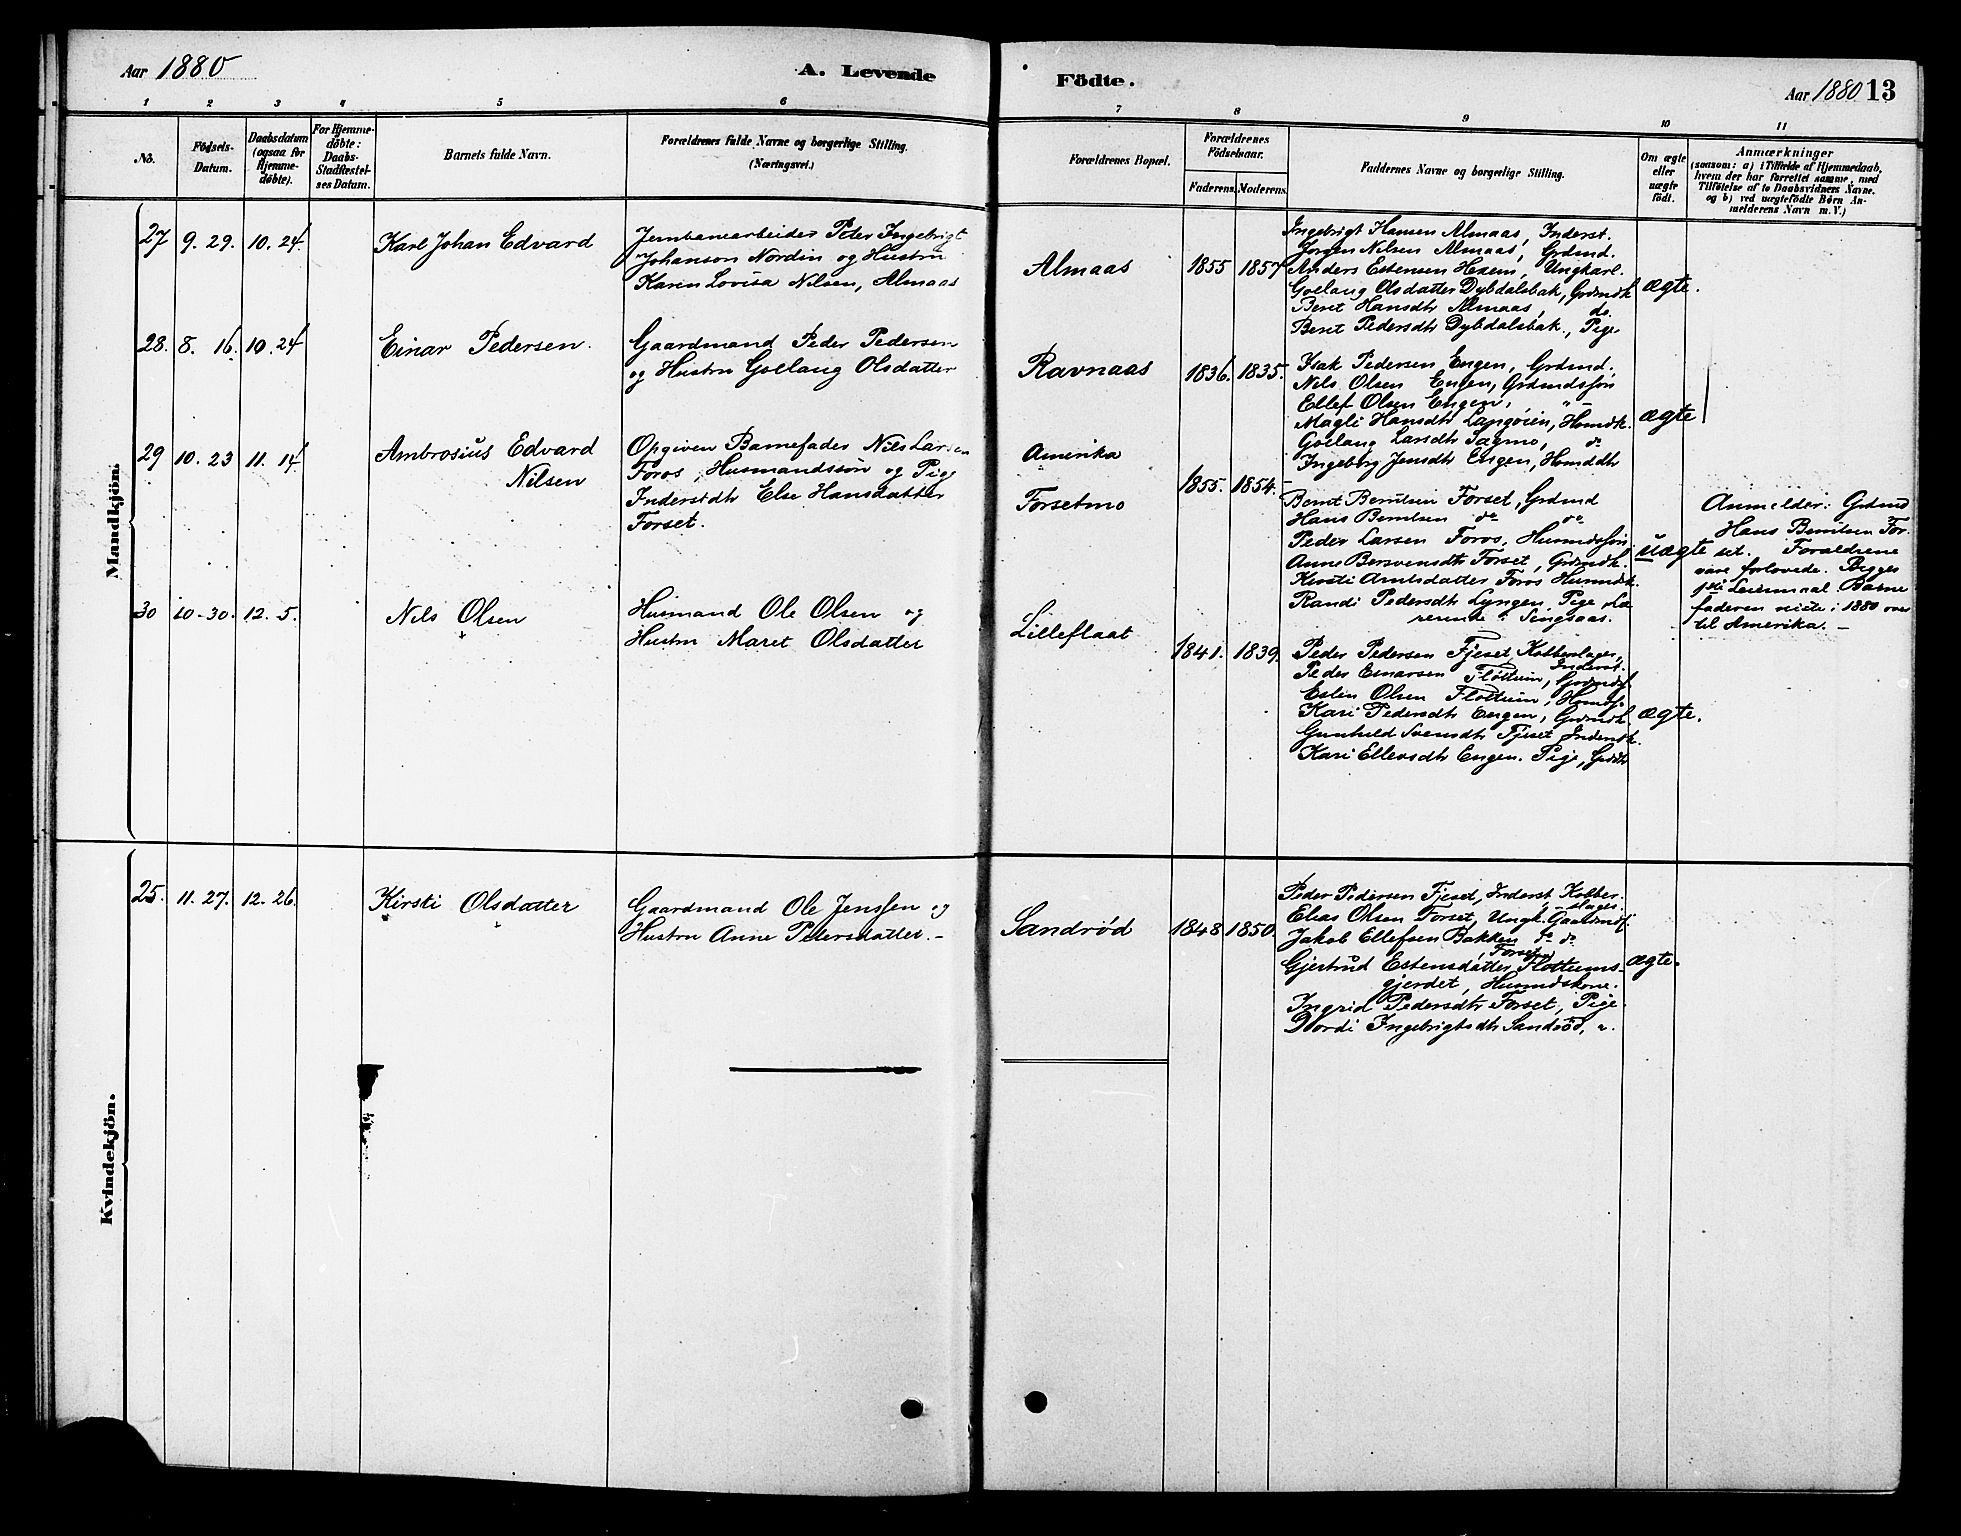 Aar 1880
A. Levende
Födte.
Aar 1880 13
1 2 3 4 5 6 7 8 9 10 11
No.
Födsels-
Datum.
Daabsdatum
(ogsaa for
Hjemme-
döbte).
For Hjemme-
döbte:
Daabs-
Stadfæstel-
ses Datum.
Barnets fulde Navn.
Forældrenes fulde Navne og borgerlige Stilling.
(Næringsvei.)
Forældrenes Bopæl.
Forældrenes
Födselsaar.
Faderens. Moderens.
Faddernes Navne og borgerlige Stilling.
Om ægte
eller
uægte
födt.
Anmærkninger
(saasom: a) i Tilfælde af Hjemmedaab,
hvem der har forrettet samme, med
Tilföielse af to Daabsvidners Navne.
og b) ved uægtefödte Börn An-
melderens Navn m.V.)
Mandkjön.
27 9. 29. 10. 24
Karl Johan Edvard
Jernbanearbeider Peter Ingebrigt
Johanson Nordin og Hustru
Karen Lovisa Nilsen, Almaas
Almaas
1855 1857
Ingebrigt Hansen Almaas, Inderst.
Jørgen Nilsen Almaas, Grdmd.
Anders Estensen Hexem, Ungkarl.
Goelaug Olsdatter Dybdalsbak, Grdmdk
Beret Hansdtr Almaas, do.
Beret Pedersdtr Dybdalsbak, Pige
ægte.
28. 8. 16. 10. 24
Einar Pedersen.
Gaardmand Peder Pedersen
og Hustru Goelaug Olsdatter
Ravnaas
1836. 1835.
Isak Pedersen Engen, Grdmd.
Nils Olsen Engen, Grdmdssøn
Ellef Olsen Engen, "
Magli Hansdtr Langøien, Hsmdk.
Goelaug Larsdtr Sagmo, do
Ingeborg Jensdtr Engen, Hsmddtr
ægte
29 10. 23 11. 14
Ambrosius Edvard
Nilsen
Opgiven Barnefader Nils Larsen
Foros, Husmandssøn og Pige
Inderstdtr Else Hansdatter
Forset.
Amerika
Forsetmo
1855. 1854.
Bernt Berntsen Forset, Grdmd
Hans Berntsen do do
Peder Larsen Foros, Husmdssøn
Anne Bersvensdtr Forset, Grdmdk.
Kirsti Arntsdatter Foros Husmdk.
Randi Pedersdtr Lyngen, Pige Læ
rerinde i Singsaas.
uægte
Anmelder: Grdmd
Hans Berntsen For-
set. Forældrene
vare forlovede. Begges
1ste Leiermaal Barne
faderen reiste i 1880 over
til Amerika. -
30 10-30. 12. 5.
Nils Olsen
Husmand Ole Olsen og
Hustru Maret Olsdatter
Lilleflaat
1841. 1839.
Peder Pedersen Fjeset Kobberslager,
Inderst.
Peder Einarsen Fløttum, Grdmdsf.
Esten Olsen Fløttum, Hsmdsf.
Kari Pedersdtr Engen, Grdmdk.
Gunhild Svensdtr Fjeset Inderstk.
Kari Ellevsdtr Engen. Pige, Grddtr
ægte.
Kvindekjön.
25. 11. 27. 12. 26.
Kirsti Olsdatter
Gaardmand Ole Jenssen og
Hustru Anne Petersdatter. -
Sandrød
1848 1850.
Peder Pedersen Fjeset, Inderst, Kobber-
slager.
Elias Olsen Forset, Ungk. Gaardmdsf.
Jakob Ellefsen Bakken do do
Forset
Gjertrud Estensdatter Fløttums-
gjerdet, Husmdskone.
Ingrid Pedersdtr Forset, Pige.
Dordi Ingebrigtsdtr Sandrød, "
ægte.